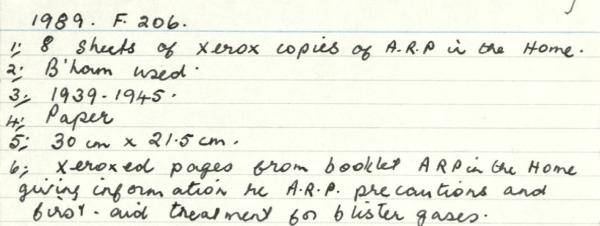 1989. F. 206.
1; 8 sheets of xerox copies of A.R.P in the Home.
2; B'ham used.
3; 1939-1945.
4; Paper
5; 30 cm x 21.5 cm.
6; xeroxed pages from booklet ARP in the Home
giving information re A.R.P. precautions and
first-aid treatment for blister gases.